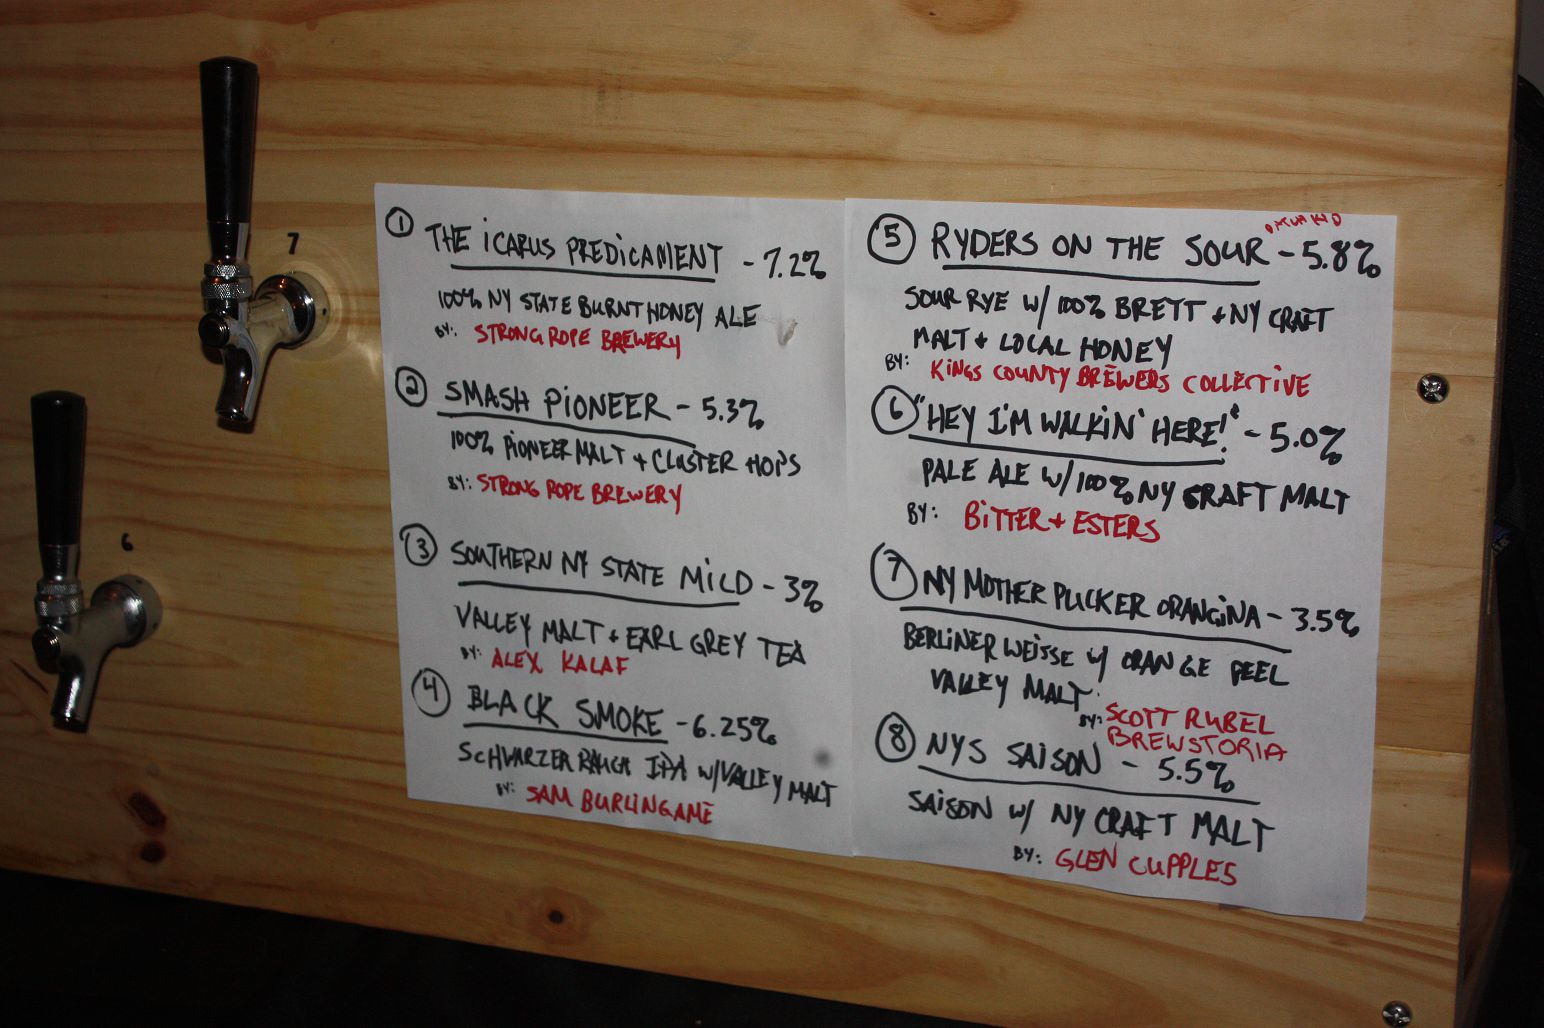 7
6
1 THE ICARUS PREDICAMENT - 7.2%
100% NY STATE BURNT HONEY ALE
BY: STRONG ROPE BREWERY
2 SMASH PIONEER - 5.3%
100% PIONEER MALT + CLUSTER HOPS
BY: STRONG ROPE BREWERY
3 SOUTHERN NY STATE MILD - 3%
VALLEY MALT + EARL GREY TEA
BY: ALEX KALAF
4 BLACK SMOKE - 6.25%
SCHWARZER RAUCH IPA W/VALLEY MALT
BY: SAM BURLINGAME
5 RYDERS ON THE SOUR - 5.8%
SOUR RYE W/ 100% BRETT + NY CRAFT
MALT + LOCAL HONEY
BY: KINGS COUNTY BREWERS COLLECTIVE
6 "HEY I'M WALKIN' HERE!" - 5.0%
PALE ALE W/ 100% NY CRAFT MALT
BY: BITTER + ESTERS
7 NY MOTHER PUCKER ORANGINA - 3.5%
BERLINER WEISSE W/ ORANGE PEEL
VALLEY MALT
BY: SCOTT RUBEL
BREWSTORIA
8 NYS SAISON - 5.5%
SAISON W/ NY CRAFT MALT
BY: GLEN CUPPLES